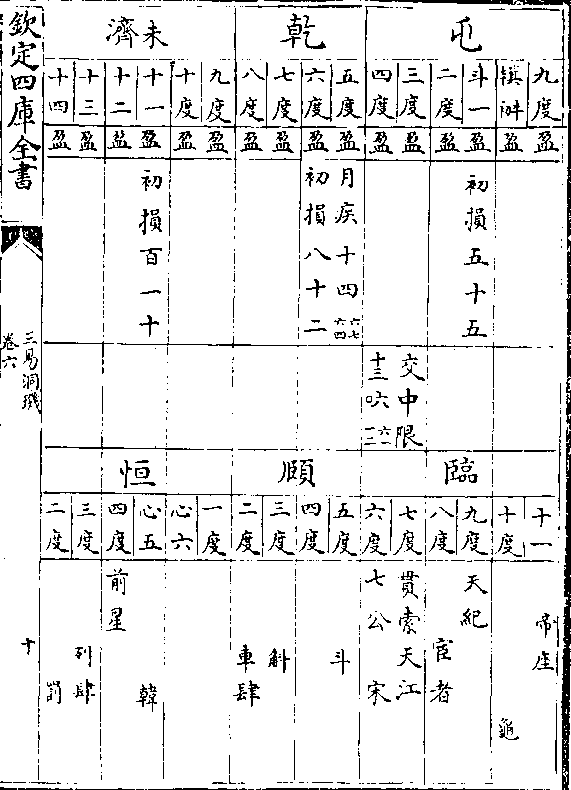 欽定四庫全書
三易洞璣
卷六
十
屯 乾 未濟
九度 斗一 二度 三度 四度 五度 六度 七度 八度 九度 十度 十一 十二 十三 十四
盈 盈 盈 盈 盈 盈 盈 盈 盈 盈 盈 盈 盈 盈 盈 盈
初損五十五
月疾十四
初損八十二
初損百一十
交中限
十三
臨 頤 恒
十一 十度 九度 八度 七度 六度 五度 四度 三度 二度 一度 心六 心五 四度 三度 二度
帝座
龜
天紀
宦者
貫索 天江
七公 宋
斗
斛
車肆
韓
前星
列肆
罰